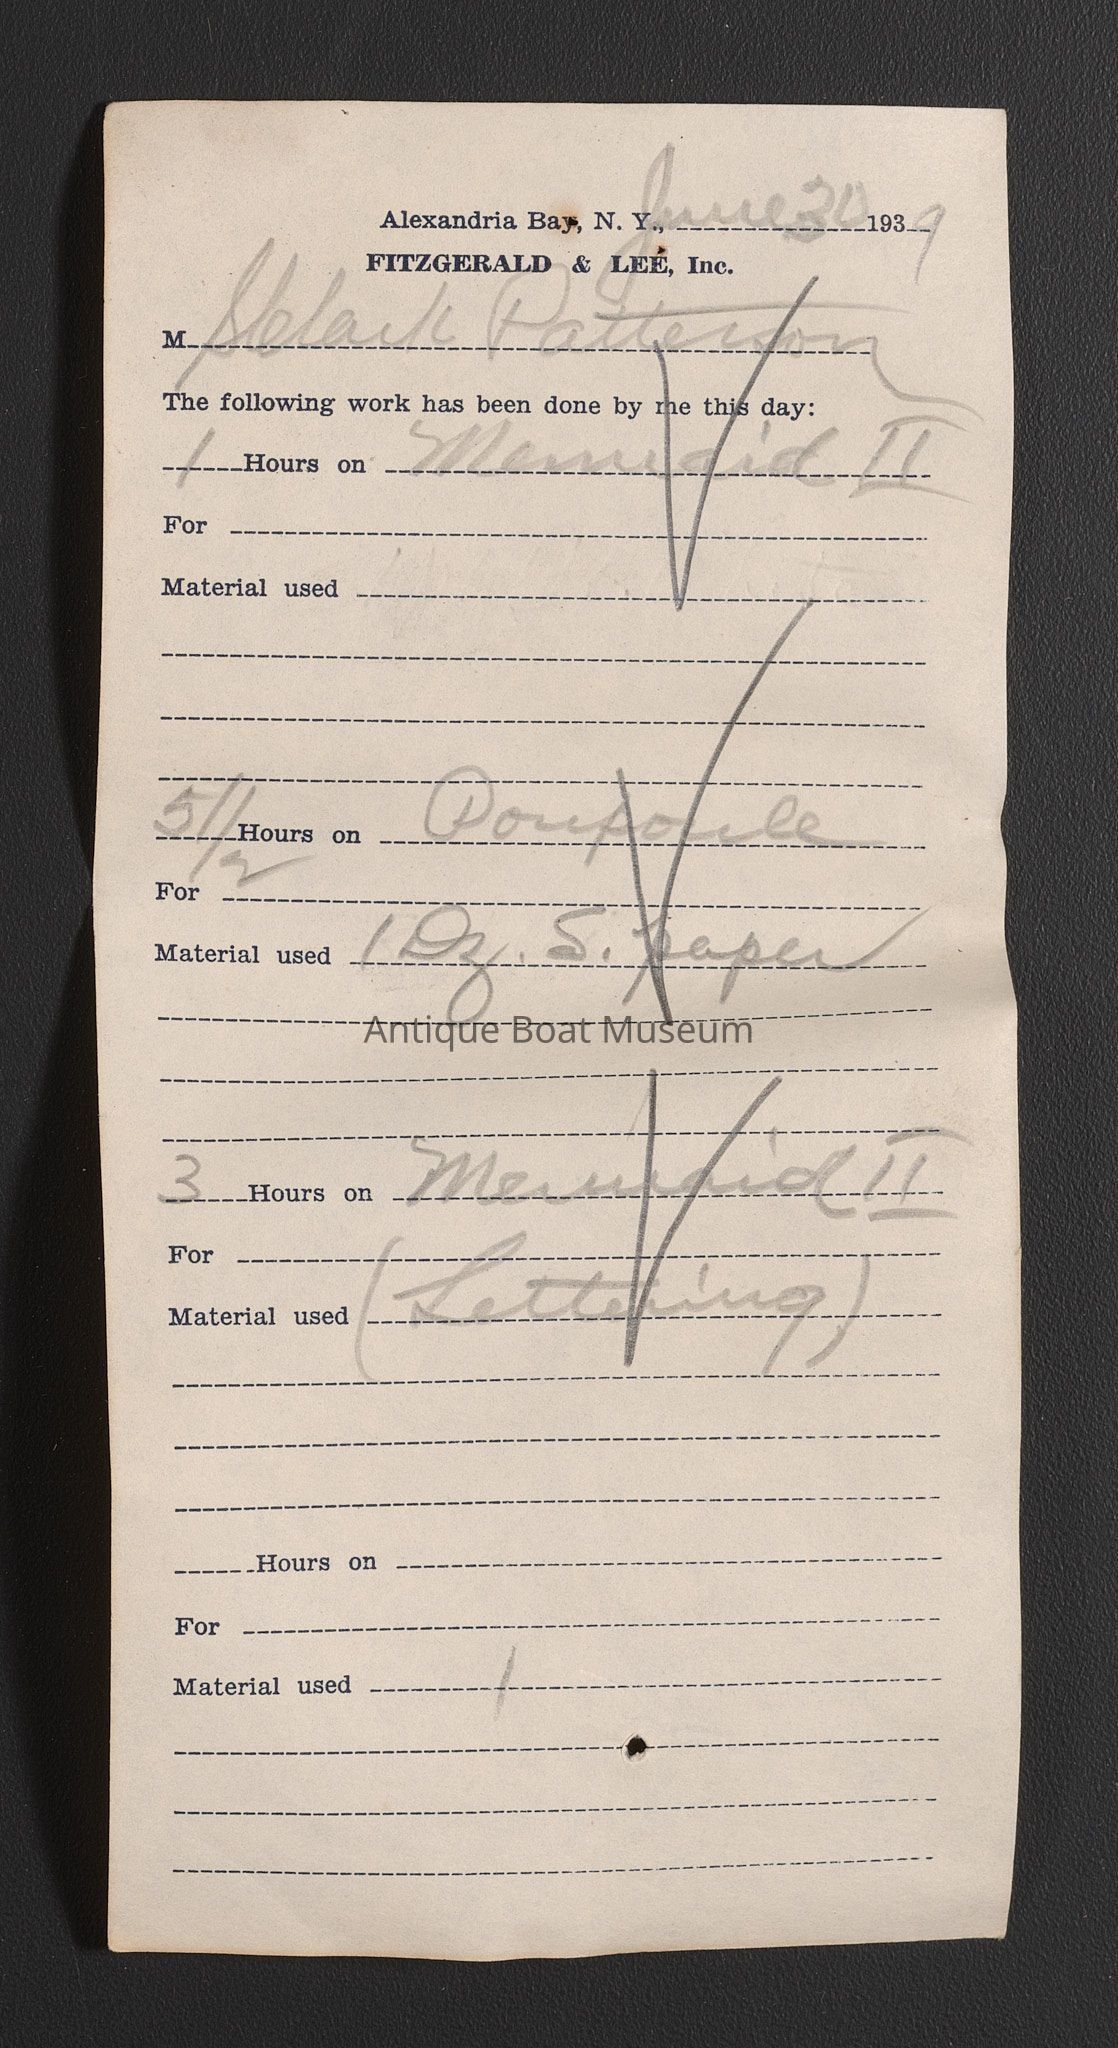 Alexandria Bay, N. Y., June 30 1939
FITZGERALD & LEE, Inc.
M Patterson
The following work has been done by me this day:
1 Hours on Mermaid II
For
Material used
5 1/2 Hours on
For
Material used 1 Dz. S. paper
Antique Boat Museum
3 Hours on Mermaid II
For
Material used (Lettering)
Hours on
For
Material used 1